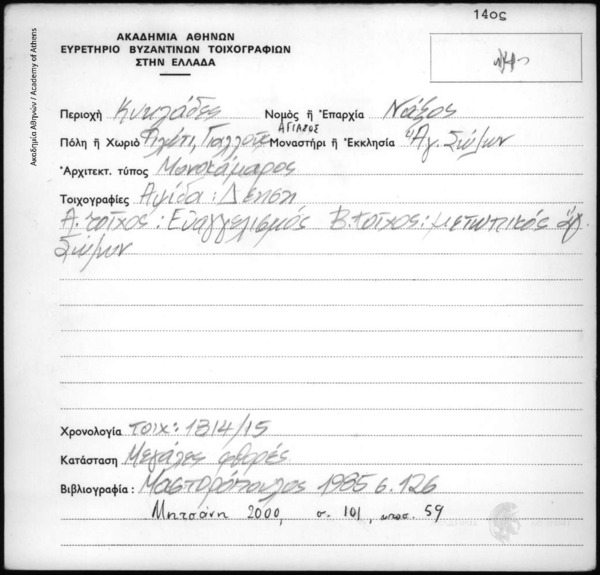 14ος
ΑΚΑΔΗΜΙΑ ΑΘΗΝΩΝ
ΕΥΡΕΤΗΡΙΟ ΒΥΖΑΝΤΙΝΩΝ ΤΟΙΧΟΓΡΑΦΙΩΝ
ΣΤΗΝ ΕΛΛΑΔΑ
Ακαδημία Αθηνών / Academy of Athens
Περιοχή Κυκλάδες Νομός ἤ Ἐπαρχία Νάξος
ΑΓΙΑΣΟΣ
Πόλη ἤ Χωριό Φιλώτι, Μοναστήρι ἤ Ἐκκλησία Ἁγ. Σώζων
Ἀρχιτεκτ. τύπος Μονοκάμαρος
Τοιχογραφίες Αψίδα: Δέηση
Α. τοίχος: Ευαγγελισμός Β. τοίχος: μετωπικός ἅγ.
Σώζων
Χρονολογία τοιχ: 1314/15
Κατάσταση Μεγάλες φθορές
Βιβλιογραφία: Μαστορόπουλος 1985 σ. 126
Μητσάνη 2000, σ. 101, υποσ. 59